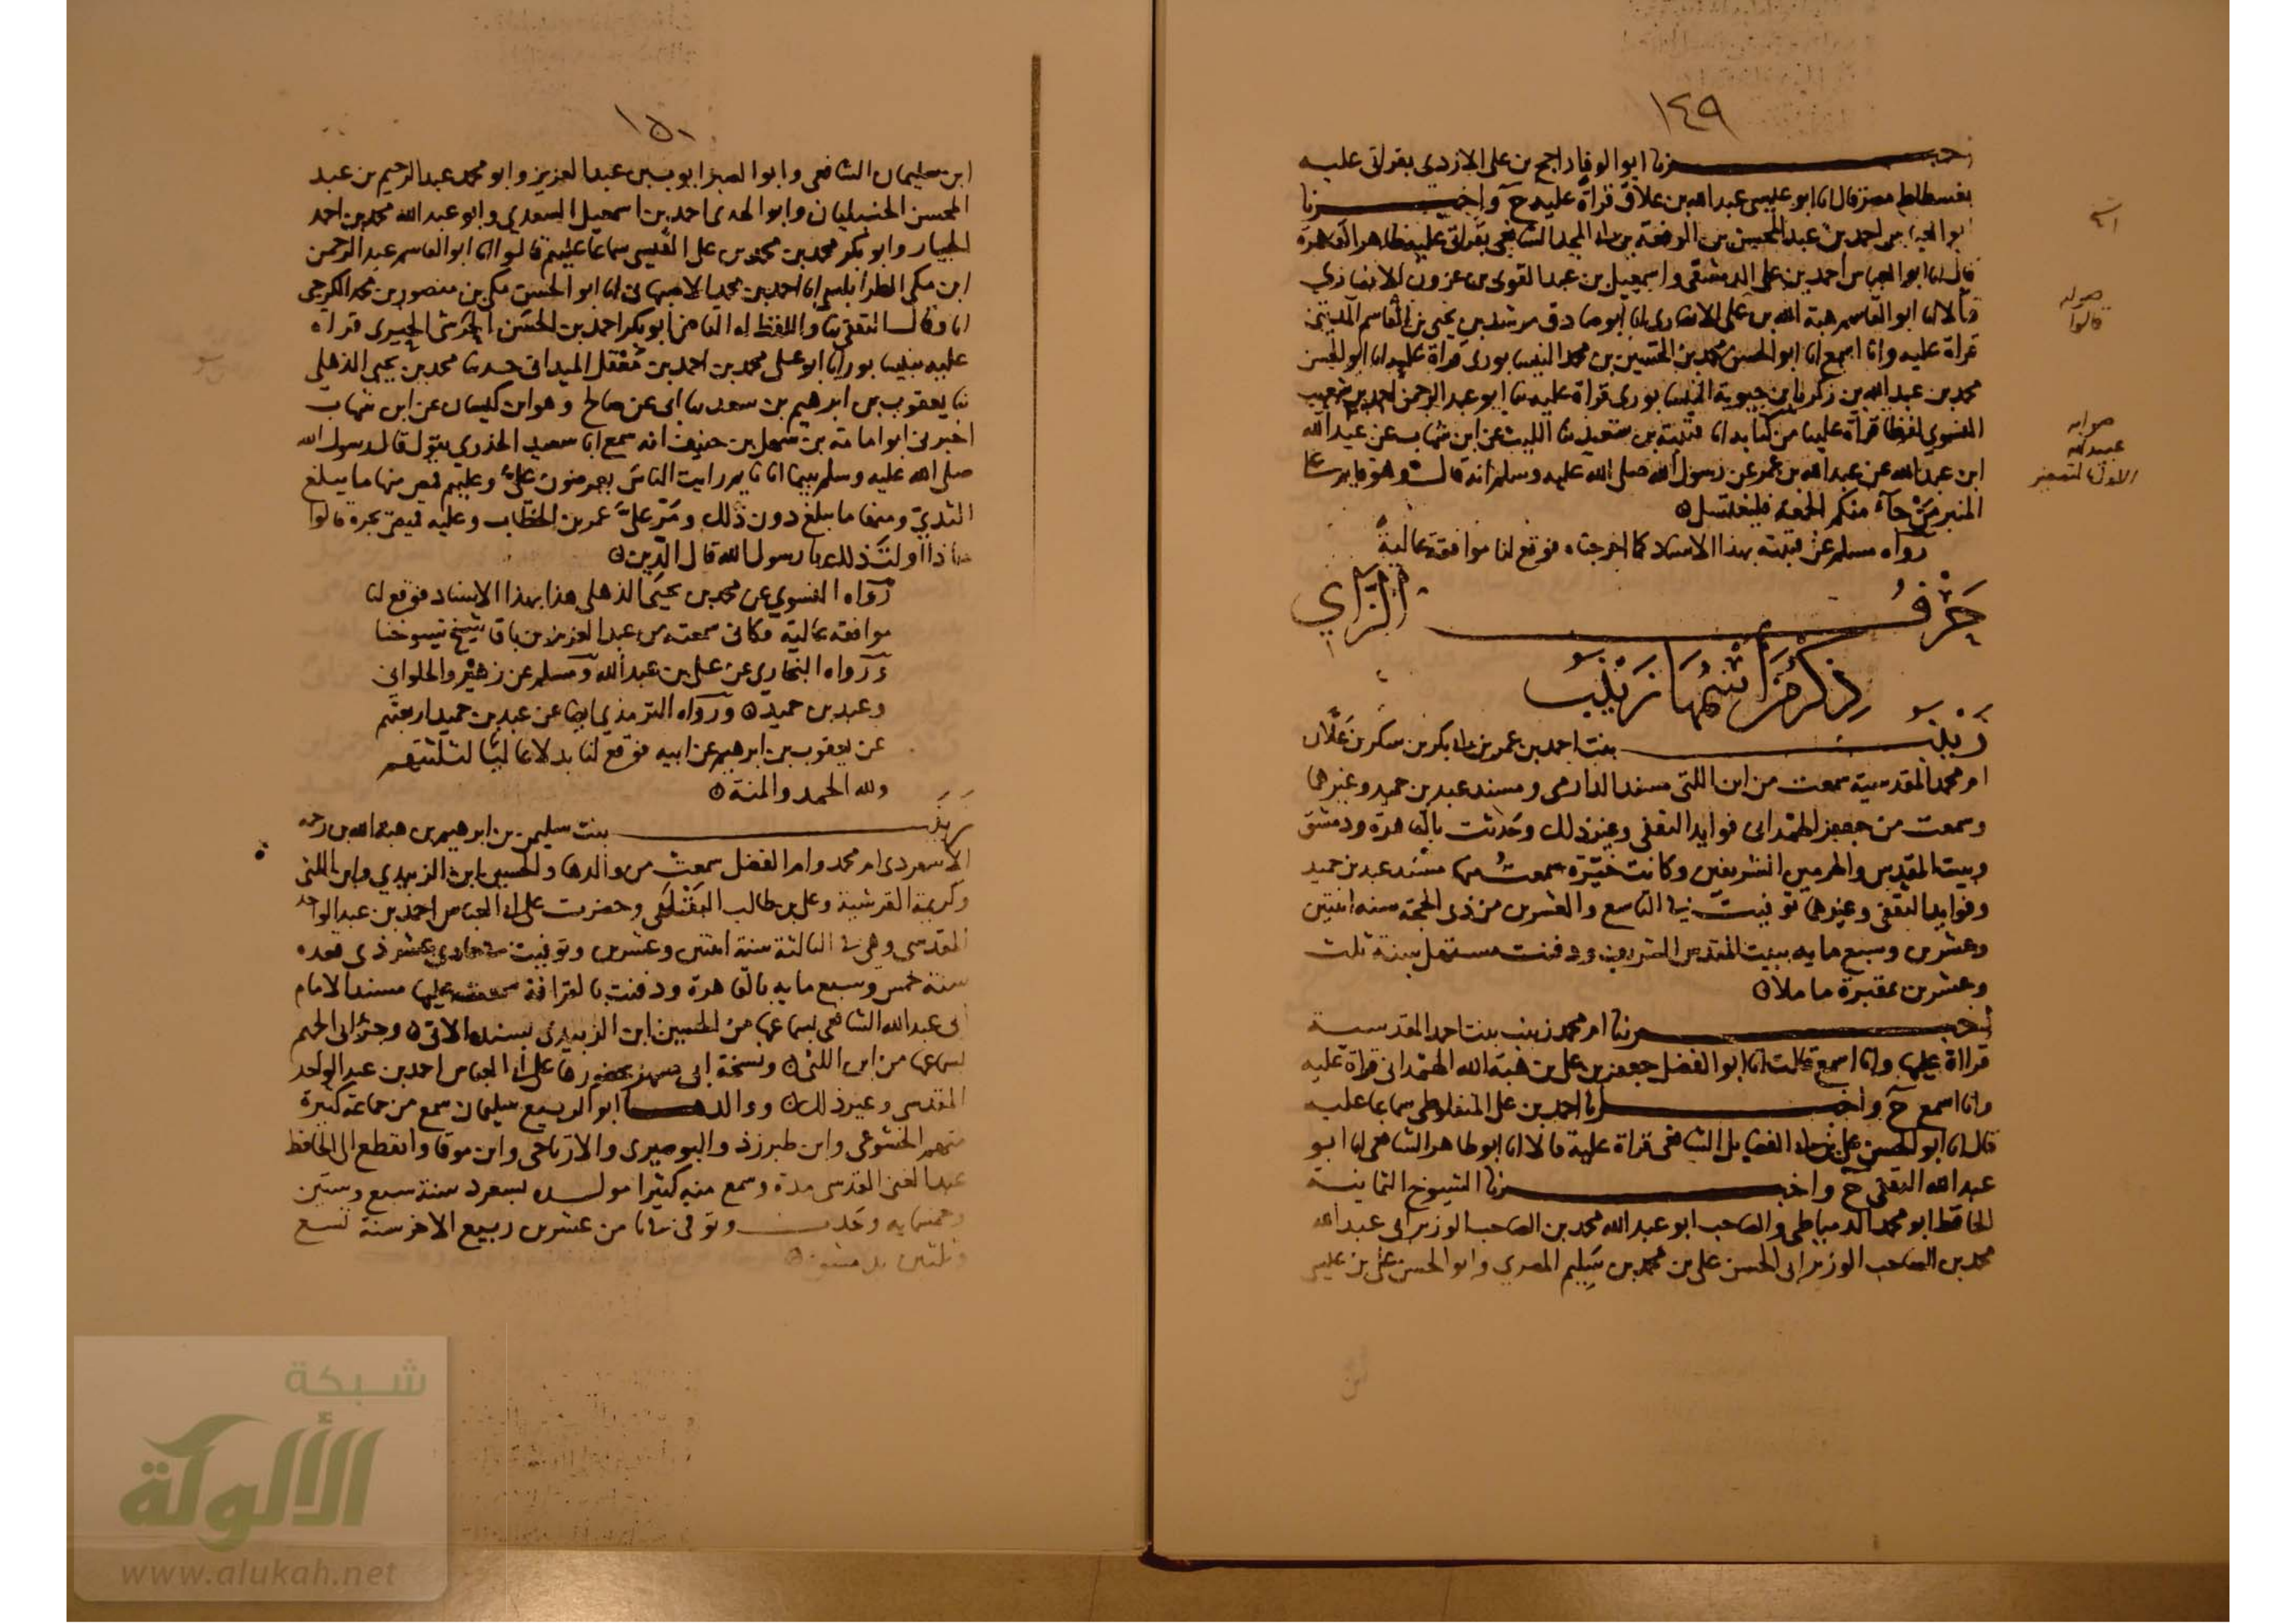 ١٤٩
اخبـــــــرنا ابو الوفا راجح بن على الازدي بقراتى عليه
بفسطاط مصر قال انا ابو عيسى عبد الله بن علاق قراة عليه ح واخبـــــرنا
احمد بن عبد المحسن بن الرفعة بن ابى المجد الشافعى بقراتى عليه بظاهر القاهرة
قال انا ابو العباس احمد بن على الدمشقى واسمعيل بن عبد القوى بن عزون الانصاري
قالا انا ابو القاسم هبة الله بن على الانصارى انا ابو صادق مرشد بن يحيى بن القاسم المدينى
قراة عليه وانا اسمع انا ابو الحسن محمد بن الحسين بن محمد النيسابورى قراة عليه انا ابو الحسن
محمد بن عبد الله بن زكريا بن حيوية النيسابورى قراة عليه ثنا ابو عبد الرحمن احمد بن شعيب
النسوي لفظا قراة علينا من كتابه انا قتيبة بن سعيد ثنا الليث عن ابن شهاب عن عبد الله
ابن عبد الله عن عبد الله بن عمر عن رسول الله صلى الله عليه وسلم انه قال وهو قايم على
المنبر من جآء منكم الجمعة فليغتسل
رواه مسلم عن قتيبة بهذا الاسناد كما اخرجناه فوقع لنا موافقة عالية
حرف الزاي
ذكر من اسمها زينب
زينب بنت احمد بن عمر بن ابى بكر بن شكر بن علان
ام محمد المقدسية سمعت من ابن اللتى مسند الدارمى ومسند عبد بن حميد وغيرهما
وسمعت من جعفر الهمدانى فوايد الثقفى وغير ذلك وحدثت بالقاهرة ودمشق
وبيت المقدس والحرمين الشريفين وكانت خيرة سمعت منها مسند عبد بن حميد
وفوايد الثقفى وغيرها توفيت فى التاسع والعشرين من ذى الحجة سنه اثنتين
وعشرين وسبع مايه ببيت المقدس الشريف ودفنت مستهل سنة ثلث
وعشرين بمقبرة ماملا
اخبـــــرتنا ام محمد زينب بنت احمد المقدسية
قراة عليها وانا اسمع قالت انا ابو الفضل جعفر بن على بن هبة الله الهمدانى قراة عليه
وانا اسمع ح واخبـــــرنا احمد بن على المنفلوطى سماعا عليه
قال انا ابو الحسن على بن ابى الفضايل الشافعى قراة عليه قالا انا ابو طاهر الشافعى انا ابو
عبد الله الثقفى ح واخبـــــرنا الشيوخ الثمانية
الحافظ ابو محمد الدمياطى والصاحب ابو عبد الله محمد بن الصاحب الوزير ابى عبد الله
محمد بن الصاحب الوزير ابى الحسن على بن محمد بن سليم المصري وابو الحسن على بن
صوابه
قالوا
صوابه
عبيد الله
الاول
١٥٠
ابن سليمان الشافعى وابو الصبر ايوب بن عبد العزيز وابو محمد عبد الرحيم بن عبد
المحسن الحنبليان وابو الهدى احمد بن اسمعيل السعدي وابو عبد الله محمد بن احمد
الجبار وابو بكر محمد بن محمد بن على القيسى سماعا عليهم قالوا انا ابو القاسم عبد الرحمن
ابن مكى الطرابلسى انا احمد بن محمد الاصبهانى انا ابو الحسن مكى بن منصور بن محمد الكرجى
انا وقال الثقفى ثنا واللفظ له القاضى ابو بكر احمد بن الحسن الحرشى الحيرى قراة
عليه بنيسابور انا ابو على محمد بن احمد بن معقل الميدانى حدثنا محمد بن يحيى الذهلى
ثنا يعقوب بن ابرهيم بن سعد ثنا ابى عن صالح وهو ابن كيسان عن ابن شهاب
اخبرنى ابو امامة بن سهل بن حنيف انه سمع ابا سعيد الخدري يقول قال رسول الله
صلى الله عليه وسلم بينا انا نايم رايت الناس يعرضون على وعليهم قمص منها ما يبلغ
الثدي ومنها ما يبلغ دون ذلك ومر على عمر بن الخطاب وعليه قميص يجره قالوا
ماذا اولت ذلك يا رسول الله قال الدين
رواه النسوي عن محمد بن يحيى الذهلى هذا بهذا الاسناد فوقع لنا
موافقة عالية وكانى سمعته من عبد العزيز بن باقا شيخ شيوخنا
ورواه البخاري عن على بن عبد الله ومسلم عن زهير والحلوانى
وعبد بن حميد ورواه الترمذي ايضا عن عبد بن حميد اربعتهم
عن يعقوب بن ابرهيم عن ابيه فوقع لنا بدلا عاليا لثلثتهم
ولله الحمد والمنة
زينب بنت سليمن بن ابرهيم بن هبة الله بن رحمه
الاسعردى ام محمد وام الفضل سمعت من والدها والحسين ابن الزبيدي وابن اللتى
وكريمة القرشية وعلى بن طالب وحضرت على ابى العباس احمد بن عبد الواحد
المقدسى وهى فى الثالثة سنة اثنتين وعشرين وتوفيت فى حادي عشر ذى قعده
سنة خمس وسبع مايه بالقاهرة ودفنت بالقرافة سمعت عليها مسند الامام
ابى عبد الله الشافعى بسماعها من الحسين ابن الزبيدى بسنده الاتى وجزء ابى الجهم
بسماعها من ابن اللتى ونسخة ابى مسهر بحضورها على ابى العباس احمد بن عبد الواحد
المقدسى وغير ذلك ووالدهـــا ابو الربيع سليمان سمع من جماعة كثيرة
منهم الخشوعى وابن طبرزذ والبوصيرى والارتاحى وابن موقا وانقطع الى الحافظ
عبد الغنى المقدسى مدة وسمع منه كثيرا مولـــده بسعرد سنة سبع وستين
وخمسمايه وحدث وتوفى فى ثامن عشرين ربيع الاخر سنة تسع
وثلثين بدمشق
شبكة
الألوكة
www.alukah.net